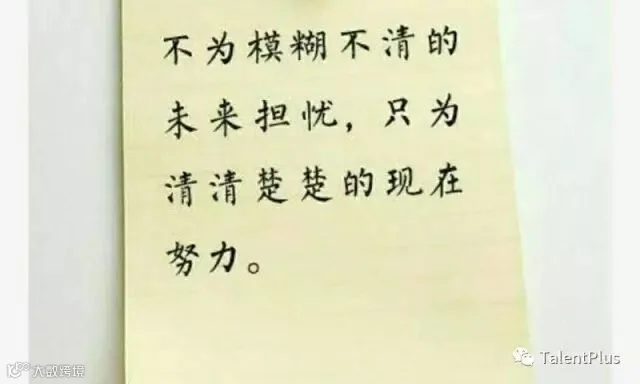 不为模糊不清的
未来担忧，只为
清清楚楚的现在
努力。
TalentPlus
大数跨境